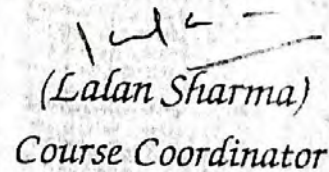 (Lalan Sharma)
Course Coordinator